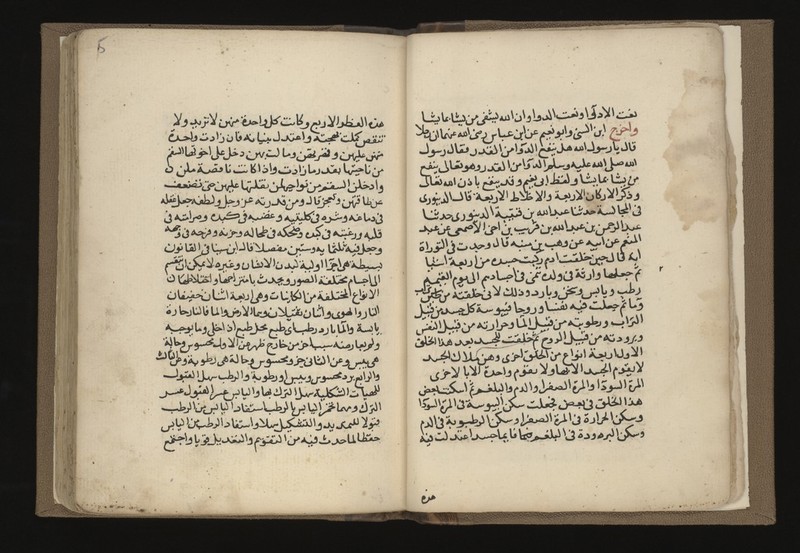 نعت الادوا ونعت الدوا وان الله يشفى من يشا بما يشا
واخرج ابن السنى وابو نعيم عن ابن عباس رضى الله عنهما ان رجلا
قال يا رسول الله هل ينفع الدوا من القدر فقال رسول
الله صلى الله عليه وسلم الدوا من القدر وهو تعالى ينفع
من يشا بما يشا ولفظ ابى نعيم وقد ينفع باذن الله تعالى
وذكر الاركان الاربعة والاخلاط الاربعة قال الدينورى
فى المجالسة حدثنا عبد الله بن قتيبة الدينورى حدثنا
عبد الرحمن بن عبد الله بن قريب بن اخى الاصمعى عن عبد
المنعم عن ابيه عن وهب بن منبه قال وجدت فى التوراة
انه قال حين خلقت ادم ركبت جسده من اربعة اشيا
ثم جعلتها وراثة فى ولده تنمى فى اجسادهم الى يوم القيمة
رطب ويابس وسخن وبارد وذلك لانى خلقته من تراب
وما ثم جعلت فيه نفسا وروحا فيبوسة كل جسد من قبل
التراب ورطوبته من قبل الما وحرارته من قبل النفس
وبرودته من قبل الروح ثم خلقت للجسد بعد هذا الخلق
الاول اربعة انواع من الخلق اخرى وهن ملاك الجسد
لا يقوم الجسد الا بها ولا تقوم واحدة الا بالاخرى
المرة السودا والمرة الصفرا والدم والبلغم ثم اسكنت بعض
هذا الخلق فى بعض فجعلت سكن اليبوسة فى المرة السودا
وسكن الحرارة فى المرة الصفرا وسكن الرطوبة فى الدم
وسكن البرودة فى البلغم فايما جسد اعتدلت فيه
هذه
5
هذه الفطر الاربع وكانت كل واحدة منهن لا تزيد ولا
تنقص كملت صحته واعتدل بنيانه فان زادت واحدة
منهن عليهن وقهرتهن ومالت بهن دخل على اخواتها السقم
من ناحيتها بقدر ما زادت واذا كانت ناقصة ملن بها
وادخلن السقم من نواحيهن لقلتها عليهن حتى تضعف
عن طاقتهن وتعجز قال ومن قدرته عز وجل ولطفه جعل عقله
فى دماغه وشره فى كليتيه وغضبه فى كبده وصرامته فى
قلبه ورغبته فى كبده وضحكه فى طحاله وحزنه وفرحه فى وجهه
وجعل فيه ثلثماية وستين مفصلا قال ابن سينا فى القانون
بسيطة هى اجزا اولية لبدن الانسان وغيره لا يمكن ان تنقسم
الى اجسام مختلفة الصور ويحدث بامتزاجها واختلاطها
الانواع المختلفة من الكاينات وهى اربعة اثنان خفيفان
النار والهوى واثنان ثقيلان وهما الارض والما فالنار حارة
يابسة والما بارد رطب اى طبعه طبع اذا خلى وما يوجبه
ولم يعارضه سبب اخر من خارج ظهر عن الاول محسوس وحالة
هى يبس وعن الثانى برد محسوس وحالة هى رطوبة
والرابع برد محسوس ويبس او رطوبة والرطب سهل القبول
للهيات الشكلية سهل الترك لها واليابس عسر القبول عسر
الترك ومهما تخمر اليابس بالرطب استفاد اليابس من الرطب
قبولا للتمديد والتشكيل سهلا واستفاد الرطب من اليابس
حفظا لما حدث فيه من التقويم والتعديل قويا واجتمع